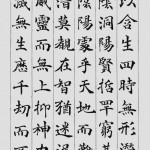 以含生四時無形潛
陰洞陽賢哲罕窮其
陰陽處乎天地而難
潛莫覩在智猶迷況
威靈而無上抑神力
滅無生歷千劫而不